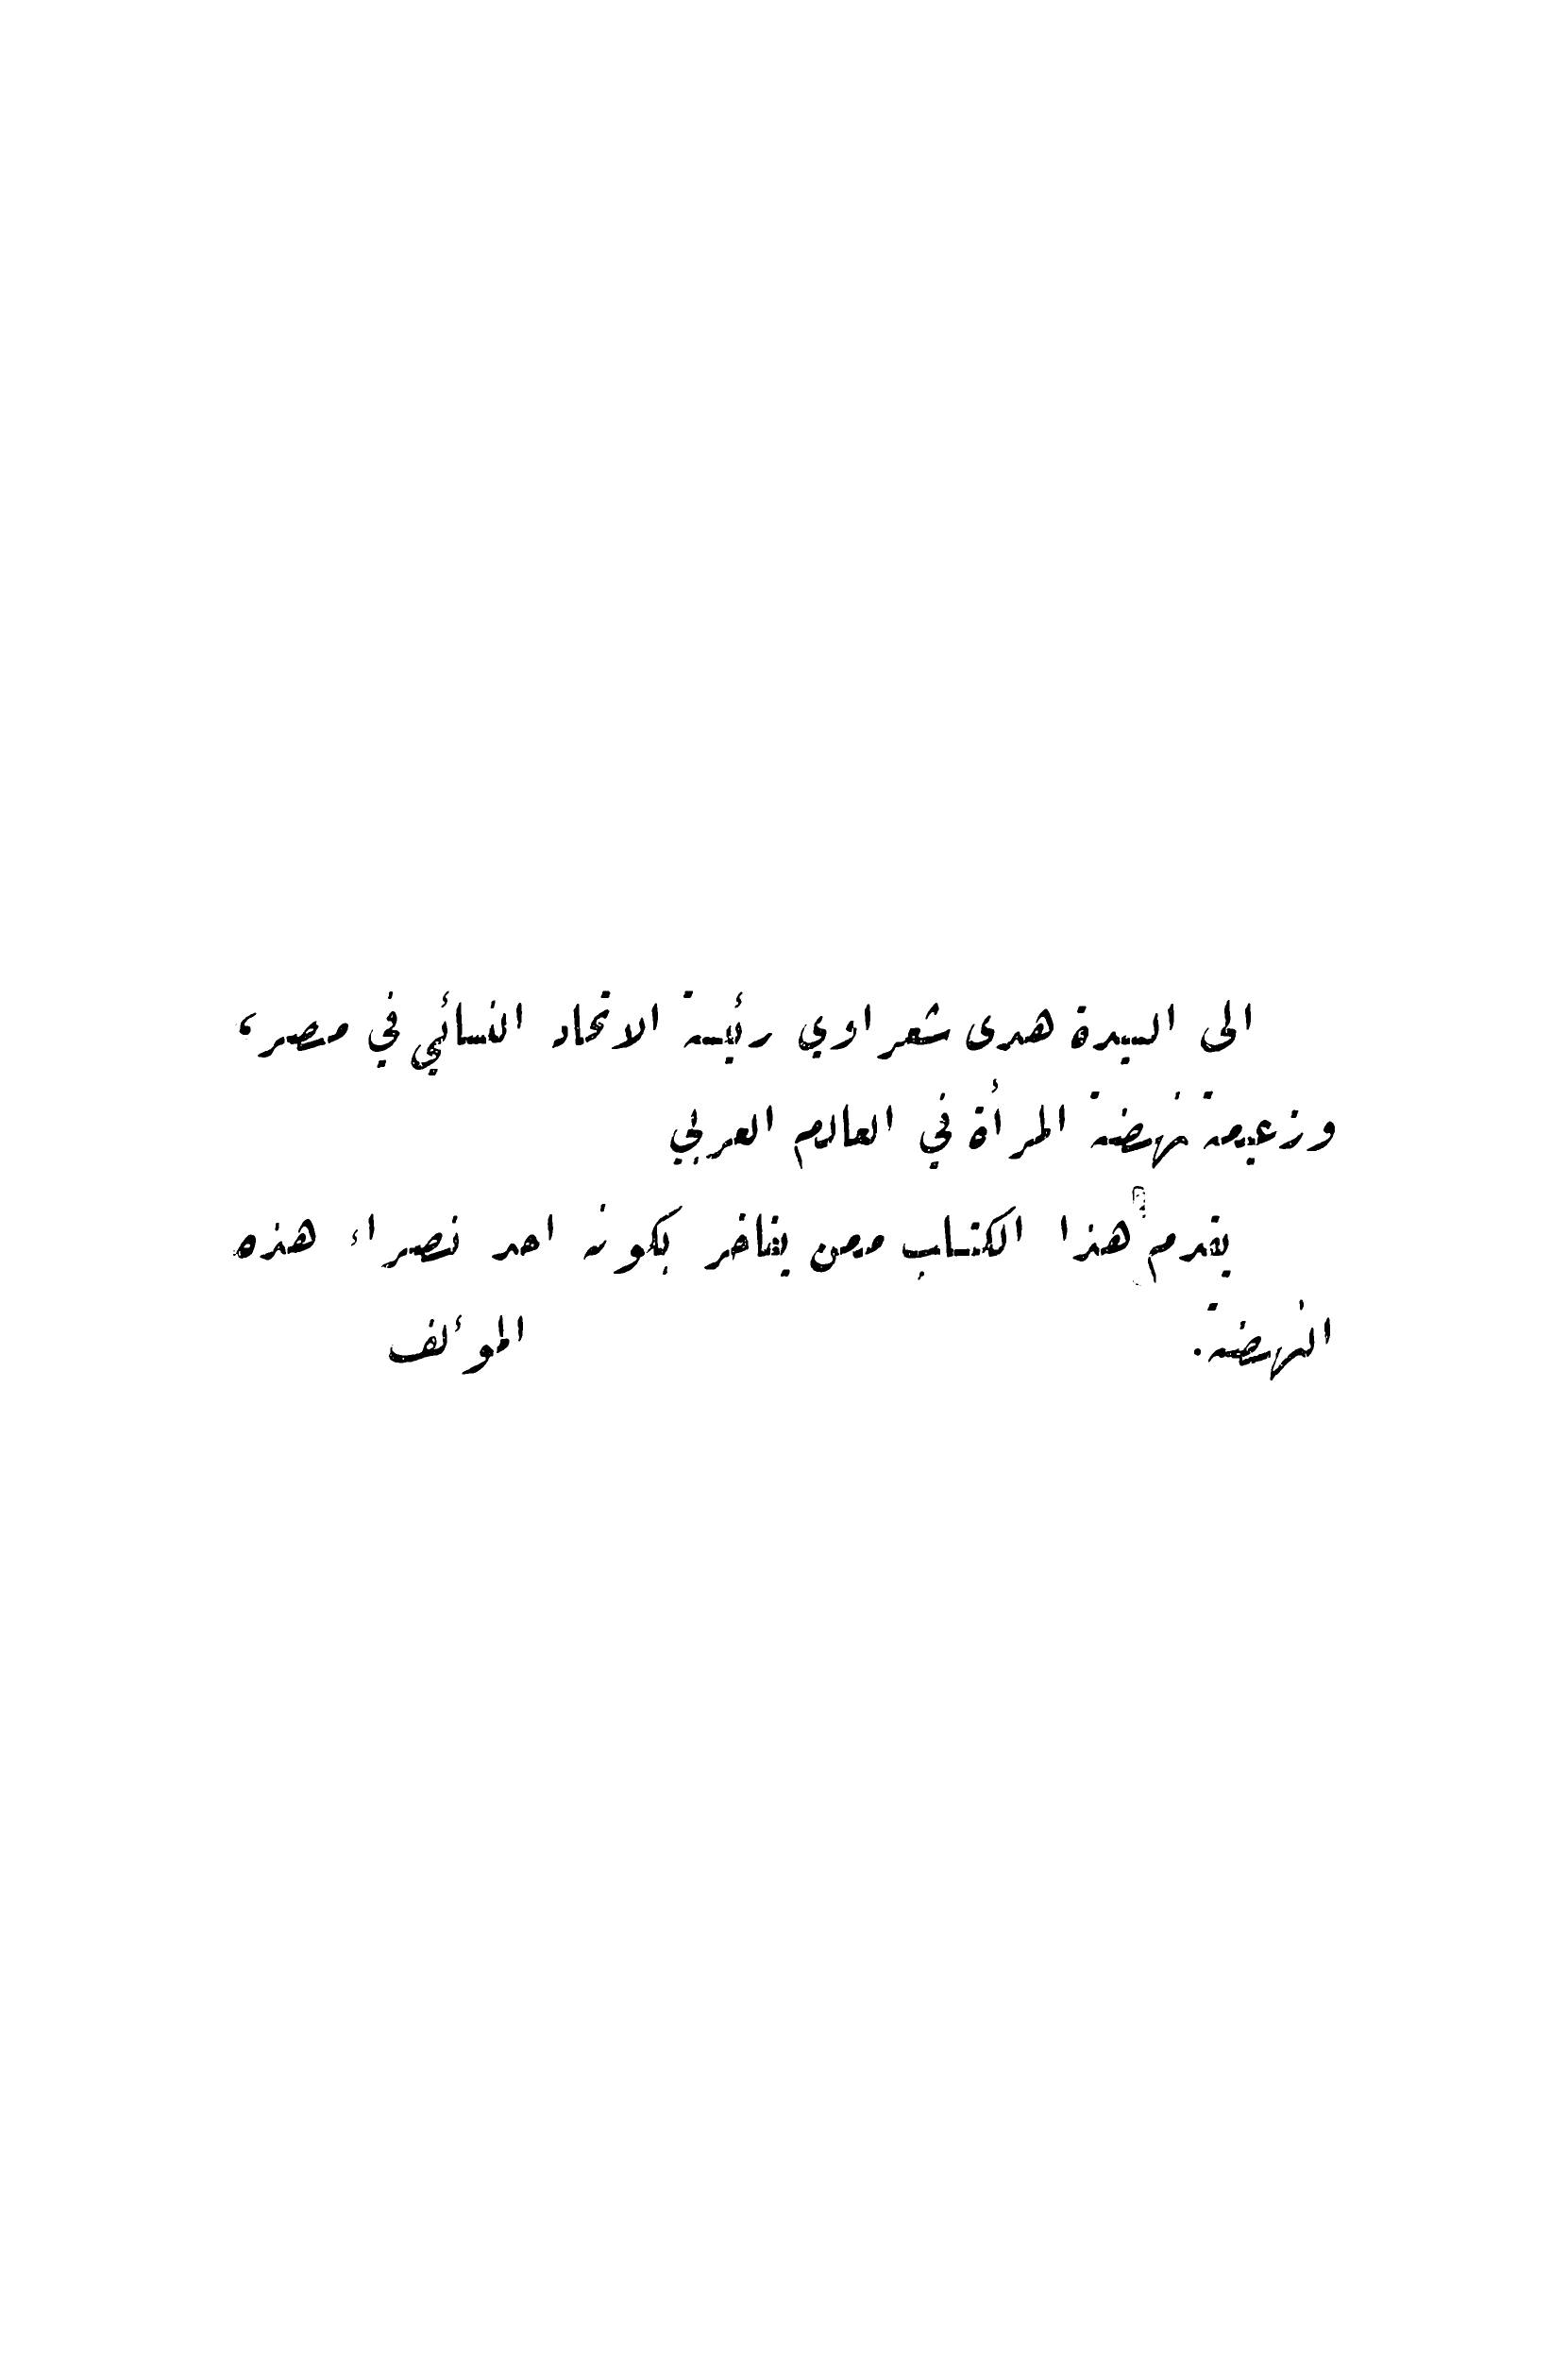 الى السيدة هدى شعراوي رئيسة الاتحاد النسائي في مصر،
وزعيمة نهضة المرأة في العالم العربي
يقدم هذا الكتاب ممن يفاخر بكونه احد نصراء هذه
النهضة. المؤلف